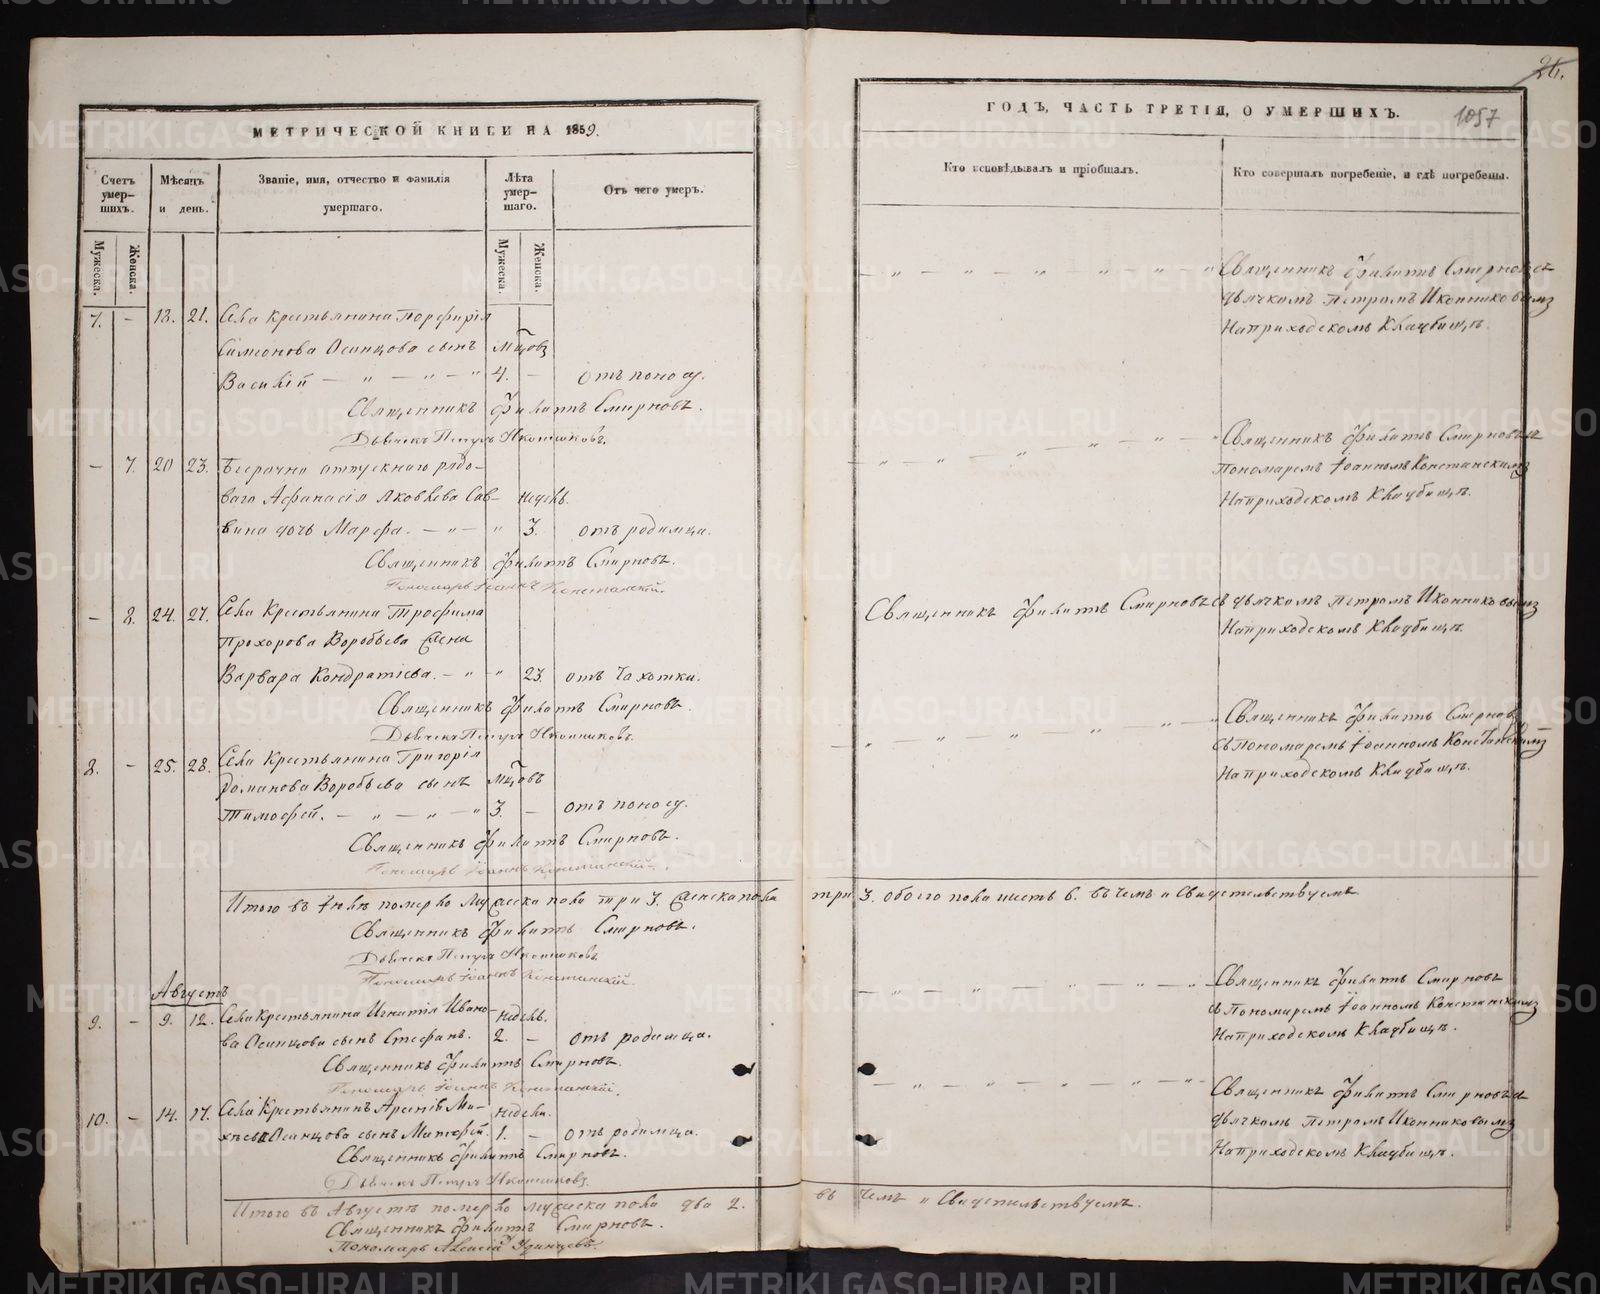 МЕТРИЧЕСКОЙ КНИГИ НА 1859.
Счетъ умер-шихъ.
Мѣсяцъ и день.
Званіе, имя, отчество и фамилія умершаго.
Лѣта умер-шаго.
Отъ чего умеръ.
Мужеска.
Женска.
Мужеска.
Женска.
7. – 18. 21. Села Крестьянина Порфирія
Симеонова Осинцова сынъ мцовъ
Василій — „ — „ — „ 4. – отъ поносу.
Священникъ Филиппъ Смирновъ.
Дьячекъ Петръ Иконниковъ.
– 7. 20 23. Безсрочно отпускнаго рядо-
ваго Афанасія Яковлева Сав- недѣль.
вина дочь Марфа. — „ — „ 3. отъ родимца.
Священникъ Филиппъ Смирновъ.
Пономарь Іоаннъ Констанскій.
– 8. 24. 27. Села Крестьянина Трофима
Прохорова Воробьева жена
Варвара Кондратіева. — „ — „ 23. отъ чахотки.
Священникъ Филиппъ Смирновъ.
Дьячекъ Петръ Иконниковъ.
8. – 25. 28. Села Крестьянина Григорія
Романова Воробьева сынъ мцовъ
Тимофей. — „ — „ — „ 3. – отъ поносу.
Священникъ Филиппъ Смирновъ.
Пономарь Іоаннъ Констанскій.
Итого въ Іюлѣ померло мужеска пола три 3. женска пола
Священникъ Филиппъ Смирновъ.
Дьячекъ Петръ Иконниковъ.
Пономарь Іоаннъ Констанскій.
Августъ
9. – 9. 12. Села Крестьянина Игнатія Ивано- недѣль.
ва Осинцова сынъ Стефанъ. 2. – отъ родимца.
Священникъ Филиппъ Смирновъ.
Пономарь Іоаннъ Констанскій.
10. – 14. 17. Села Крестьянинъ Арсеній Ми- недѣли.
хѣева Осинцова сынъ Матфей. 1. – отъ родимца.
Священникъ Филиппъ Смирновъ.
Дьячекъ Петръ Иконниковъ.
Итого въ Августѣ померло мужеска пола два 2.
Священникъ Филиппъ Смирновъ.
Пономарь Алексій Удинцевъ.
26.
ГОДЪ, ЧАСТЬ ТРЕТІЯ, О УМЕРШИХЪ.
1057
Кто исповѣдывалъ и пріобщалъ.
Кто совершалъ погребеніе, и гдѣ погребены.
Священникъ Филиппъ Смирновъ съ
дьячкомъ Петромъ Иконниковымъ
На приходскомъ Кладбищѣ.
Священникъ Филиппъ Смирновъ съ
Пономаремъ Іоанномъ Констанскимъ
На приходскомъ Кладбищѣ.
Священникъ Филиппъ Смирновъ съ дьячкомъ Петромъ Иконниковымъ
На приходскомъ Кладбищѣ.
Священникъ Филиппъ Смирновъ
съ Пономаремъ Іоанномъ Констанскимъ
На приходскомъ Кладбищѣ.
три 3. обоего пола шесть 6. въ чемъ и Свидетельствуемъ
Священникъ Филиппъ Смирновъ
съ Пономаремъ Іоанномъ Констанскимъ
На приходскомъ Кладбищѣ.
Священникъ Филиппъ Смирновъ съ
дьячкомъ Петромъ Иконниковымъ
На приходскомъ Кладбищѣ.
въ чемъ и Свидетельствуемъ.
METRIKI.GASO-URAL.RU